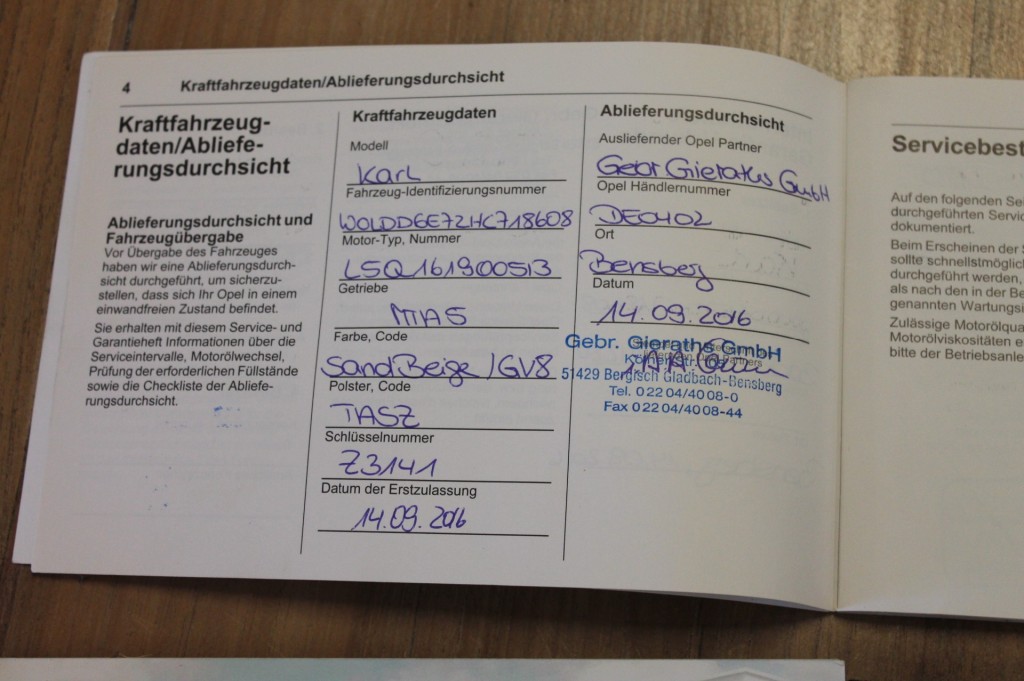 4 Kraftfahrzeugdaten/Ablieferungsdurchsicht
Kraftfahrzeug-
daten/Abliefe-
rungsdurchsicht
Ablieferungsdurchsicht und
Fahrzeugübergabe
Vor Übergabe des Fahrzeuges
haben wir eine Ablieferungsdurch-
sicht durchgeführt, um sicherzu-
stellen, dass sich Ihr Opel in einem
einwandfreien Zustand befindet.
Sie erhalten mit diesem Service- und
Garantieheft Informationen über die
Serviceintervalle, Motorölwechsel,
Prüfung der erforderlichen Füllstände
sowie die Checkliste der Abliefe-
rungsdurchsicht.
Kraftfahrzeugdaten
Modell
Karl
Fahrzeug-Identifizierungsnummer
W0LDD6E72HC718608
Motor-Typ, Nummer
LSQ161900513
Getriebe
MTA5
Farbe, Code
SandBeige /GV8
Polster, Code
TASZ
Schlüsselnummer
Z3141
Datum der Erstzulassung
14.09.2016
Ablieferungsdurchsicht
Ausliefernder Opel Partner
Gebr Gieraths GmbH
Opel Händlernummer
DE0402
Ort
Bensberg
Datum
14.09.2016
Gebr. Gieraths GmbH
Kölner Str.
51429 Bergisch Gladbach-Bensberg
Tel. 0 22 04/40 08-0
Fax 0 22 04/40 08-44
Servicebest
Auf den folgenden Se
durchgeführten Servic
dokumentiert.
Beim Erscheinen der S
sollte schnellstmöglich
durchgeführt werden,
als nach den in der Be
genannten Wartungsi
Zulässige Motorölqua
Motorölviskositäten e
bitte der Betriebsanle